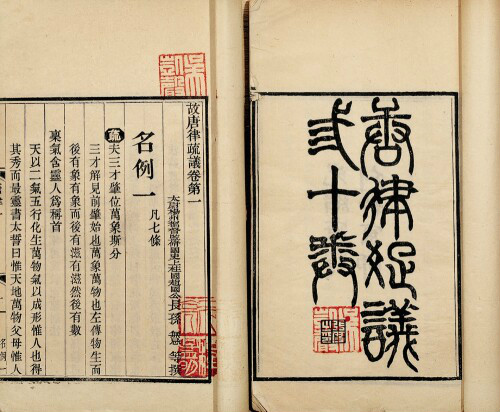 唐律疏議
弎十卷
故唐律疏議卷第一
太尉揚州都督監修國史上柱國趙國公長孫無忌等撰
名例一 凡七條
疏 夫三才肇位萬象斯分
三才解見前肇始也萬象萬物也左傳物生而
後有象有象而後有滋有滋然後有數
稟氣含靈人爲稱首
天以二氣五行化生萬物氣以成形惟人也得
其秀而最靈書太誓曰惟天地萬物父母惟人